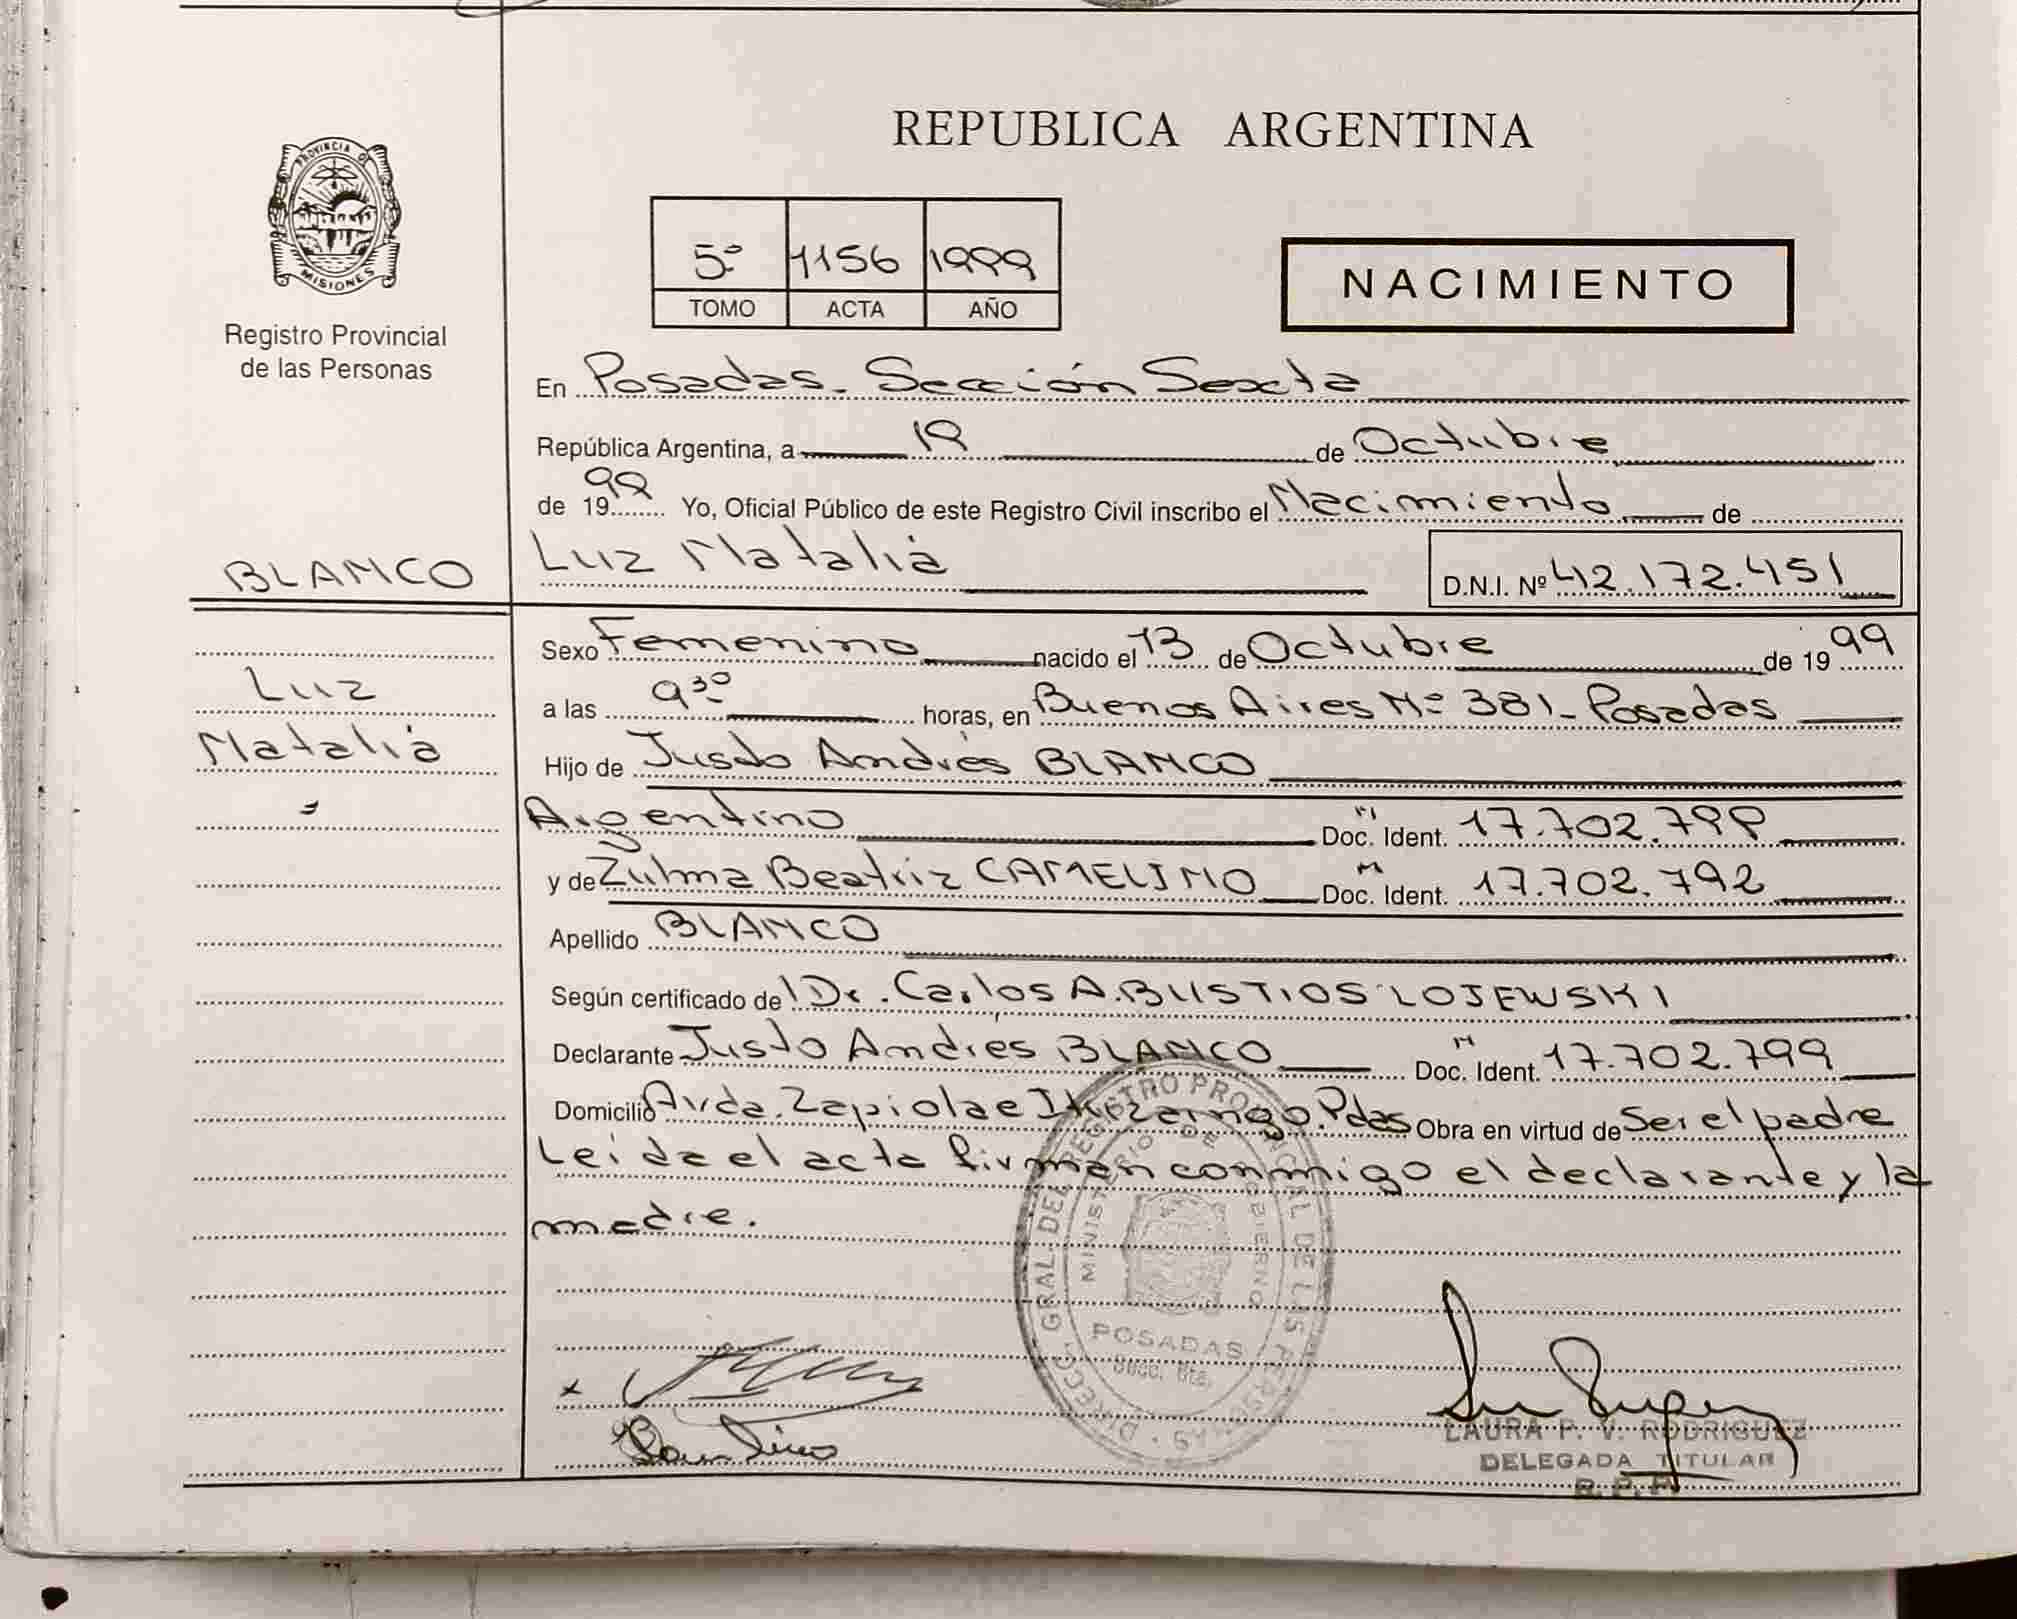 REPUBLICA ARGENTINA
PROVINCIA D
MISIONES
Registro Provincial
de las Personas
5º 1156 1999
TOMO ACTA AÑO
NACIMIENTO
En Posadas. Sección Sexta
República Argentina, a 19 de Octubre
de 1999 Yo, Oficial Público de este Registro Civil inscribo el Nacimiento de
BLANCO
Luz Natalia
D.N.I. Nº 42.172.451
Luz
Natalia
Sexo Femenino nacido el 13 de Octubre de 1999
a las 9³⁰ horas, en Buenos Aires Nº 381 - Posadas
Hijo de Justo Andrés BLANCO
Argentino Doc. Ident. 17.702.799
y de Zulma Beatriz CAMELINO Doc. Ident. 17.702.792
Apellido BLANCO
Según certificado de Dr. Carlos A. BUSTIOS LOJEWSKI
Declarante Justo Andrés BLANCO Doc. Ident. 17.702.799
Domicilio Avda. Zapiola e Ituzaingo. Pdas Obra en virtud de Ser el padre
Leida el acta firman conmigo el declarante y la
madre.
DIRECC. GRAL. DEL REGISTRO PROVINCIAL DE LAS PERSONAS
MINISTERIO DE GOBIERNO
POSADAS
Secc. 6ta.
LAURA P. V. RODRIGUEZ
DELEGADA TITULAR
R. P. P.